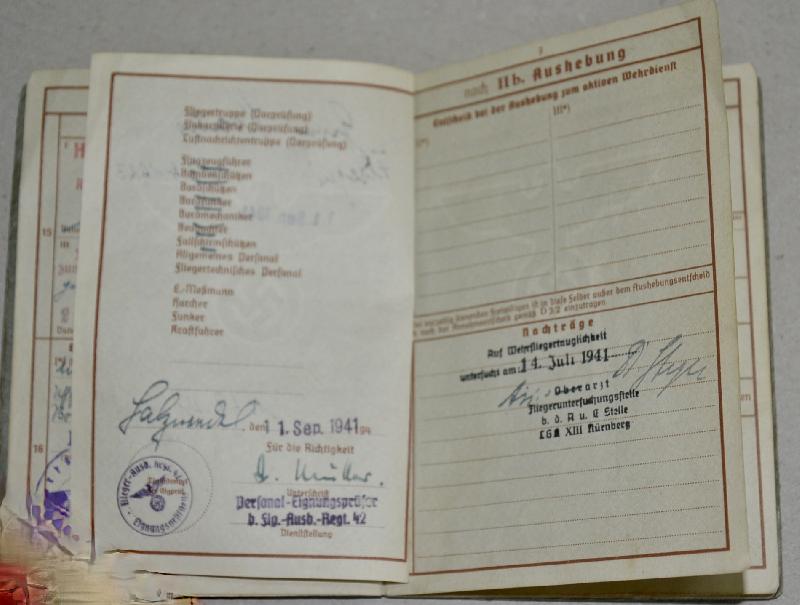 Fliegertruppe (Vorprüfung)
Flakartillerie (Vorprüfung)
Luftnachrichtentruppe (Vorprüfung)
Flugzeugführer
Bombenschützen
Bordschützen
Bordfunker
Bordmechaniker
Beobachter
Fallschirmschützen
Allgemeines Personal
Fliegertechnisches Personal
E.-Meßmann
Horcher
Funker
Kraftfahrer
Salzwedel, den 11. Sep. 1941 194
Für die Richtigkeit
Dr. Müller
Unterschrift
Personal-Eignungsprüfer
b. Flg.-Ausb.-Regt. 42
Dienststellung
Flieger-Ausb. Regt. 42
Dienststempel
3
noch IIb. Aushebung
Entscheid bei der Aushebung zum aktiven Wehrdienst
I*)
III*)
in diese Felder außer dem Aushebungsentscheid
gemäß D 3/2 einzutragen.
Nachträge
Auf Wehrfliegertauglichkeit
untersucht am: 14. Juli 1941
Oberarzt
Fliegeruntersuchungsstelle
b. d. A u. E Stelle
LGK XIII Nürnberg
15
16